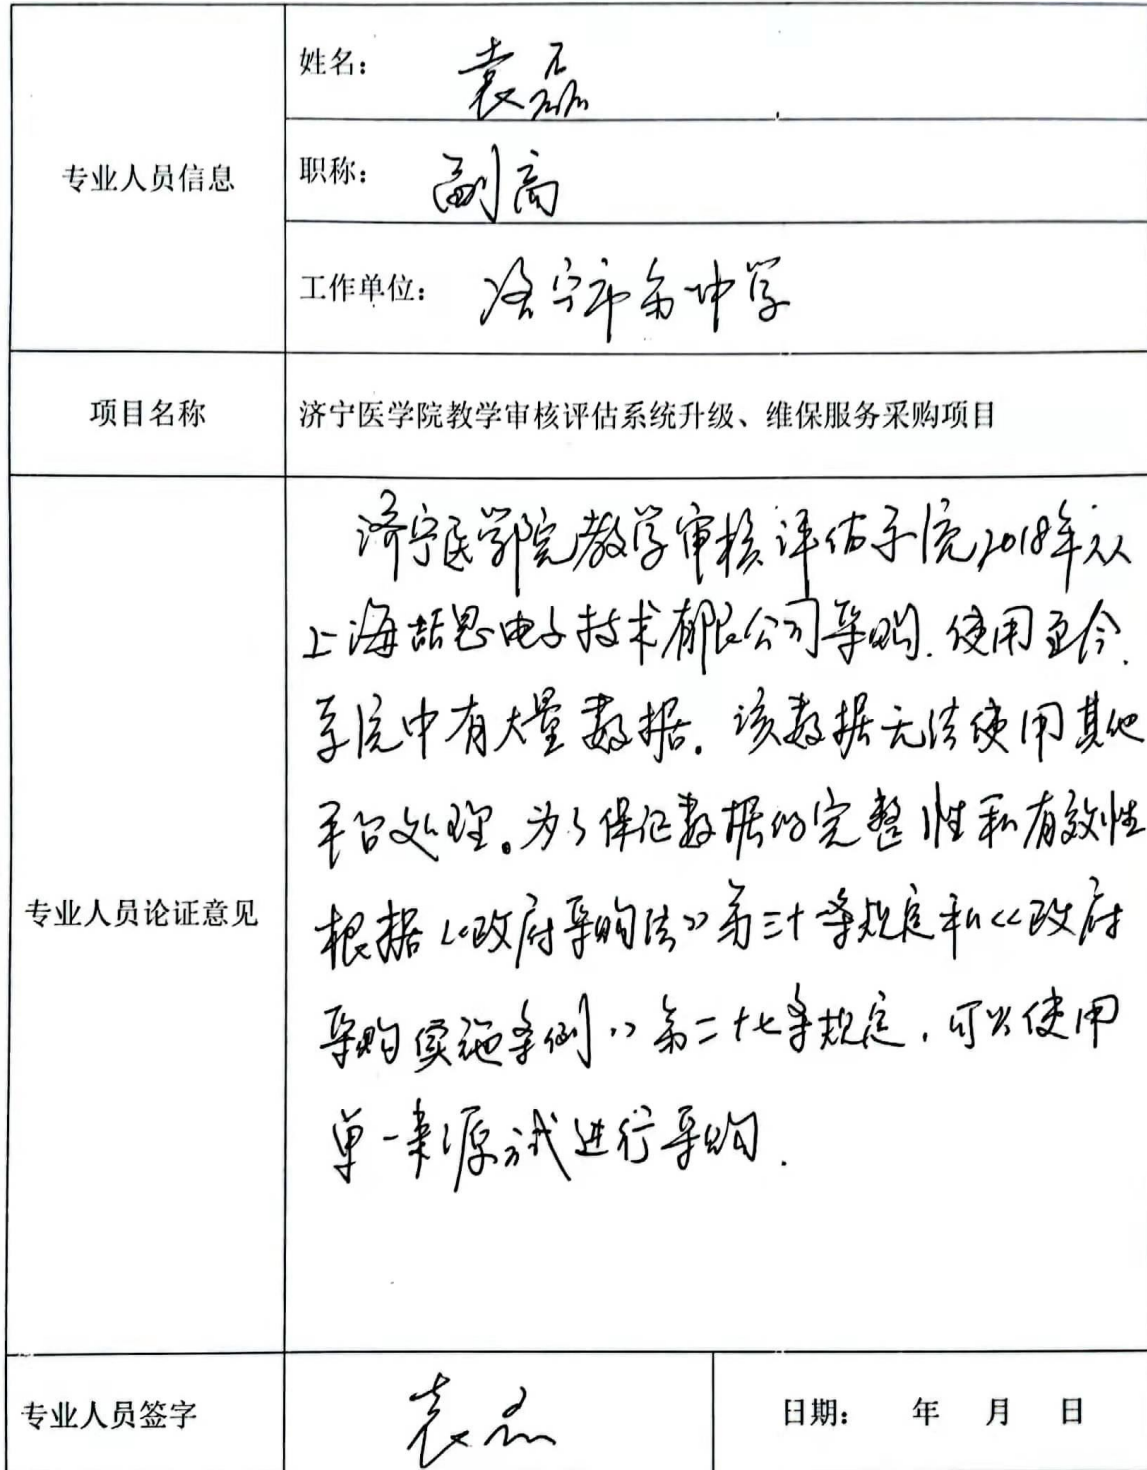 姓名： 袁磊
专业人员信息
职称： 副高
工作单位： 济宁市第一中学
项目名称
济宁医学院教学审核评估系统升级、维保服务采购项目
济宁医学院教学审核评估系统2018年从
上海喆思电子技术有限公司采购.使用至今.
系统中有大量数据.该数据无法使用其他
平台处理。为了保证数据的完整性和有效性
专业人员论证意见
根据《政府采购法》第三十一条规定和《政府
采购实施条例》第二十七条规定,可以使用
单一来源方式进行采购.
专业人员签字 袁磊 日期： 年 月 日